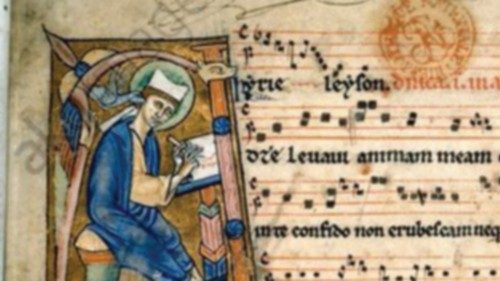 yrie leyson. dnica. i. in a
dte Leuaui animam meam
in te confido non erubescam neq